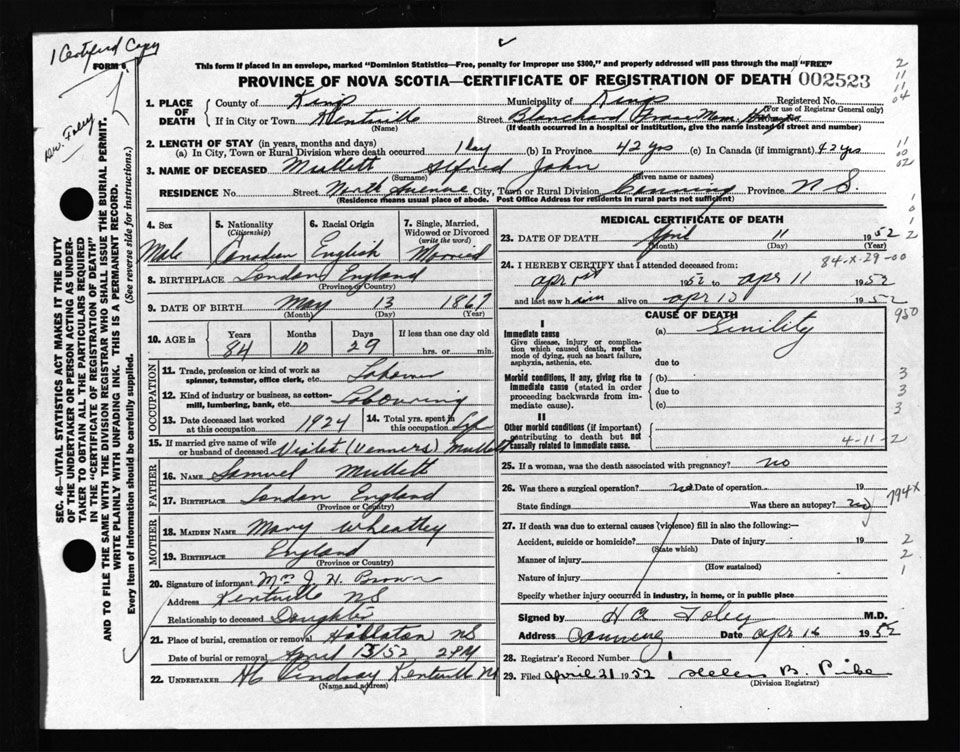 1 Certified Copy
FORM 6
This form if placed in an envelope, marked "Dominion Statistics—Free, penalty for improper use $300," and properly addressed will pass through the mail "FREE"
PROVINCE OF NOVA SCOTIA—CERTIFICATE OF REGISTRATION OF DEATH 002523
1. PLACE OF DEATH
County of Kings Municipality of Kings Registered No.
(For use of Registrar General only)
If in City or Town Kentville Street Blanchard Fraser Mem.
(Name) (If death occurred in a hospital or institution, give the name instead of street and number)
2. LENGTH OF STAY (in years, months and days)
(a) In City, Town or Rural Division where death occurred 1 day (b) In Province 42 yrs (c) In Canada (if immigrant) 42 yrs
3. NAME OF DECEASED Mullett Alfred John
(Surname) (Given name or names)
RESIDENCE No. Street North Avenue City, Town or Rural Division Canning Province N S.
(Residence means usual place of abode. Post Office Address for residents in rural parts not sufficient)
4. Sex
Male
5. Nationality (Citizenship)
Canadian
6. Racial Origin
English
7. Single, Married, Widowed or Divorced (write the word)
Married
8. BIRTHPLACE London England
(Province or Country)
9. DATE OF BIRTH May 13 1867
(Month) (Day) (Year)
10. AGE in Years Months Days If less than one day old
84 10 29 hrs. or min.
OCCUPATION
11. Trade, profession or kind of work as spinner, teamster, office clerk, etc. Laborer
12. Kind of industry or business, as cotton-mill, lumbering, bank, etc. Labouring
13. Date deceased last worked at this occupation 1924
14. Total yrs. spent in this occupation Life
15. If married give name of wife or husband of deceased Violet (Venners) Mullett
FATHER
16. NAME Samuel Mullett
17. BIRTHPLACE London England
(Province or Country)
MOTHER
18. MAIDEN NAME Mary Wheatley
19. BIRTHPLACE England
(Province or Country)
20. Signature of informant Mrs J. H. Brown
Address Kentville NS
Relationship to deceased Daughter
21. Place of burial, cremation or removal NS
Date of burial or removal April 13/52 2 PM
22. UNDERTAKER Lindsay Kentville NS
(Name and address)
MEDICAL CERTIFICATE OF DEATH
23. DATE OF DEATH April 11 1952
(Month) (Day) (Year)
84-X-29-00
24. I HEREBY CERTIFY that I attended deceased from:
Apr 1st 1952 to apr 11 1952
and last saw him alive on apr 10 1952
CAUSE OF DEATH
I
Immediate cause (a) Senility
Give disease, injury or complication which caused death, not the mode of dying, such as heart failure, asphyxia, asthenia, etc.
due to
Morbid conditions, if any, giving rise to immediate cause (stated in order proceeding backwards from immediate cause).
(b)
due to
(c)
II
Other morbid conditions (if important) contributing to death but not causally related to immediate cause.
4-11-2
25. If a woman, was the death associated with pregnancy? no
26. Was there a surgical operation? no Date of operation 19
State findings Was there an autopsy? no
27. If death was due to external causes (violence) fill in also the following:—
Accident, suicide or homicide? Date of injury 19
(State which)
Manner of injury
(How sustained)
Nature of injury
Specify whether injury occurred in industry, in home, or in public place
Signed by H A Foley M.D.
Address Canning Date apr 16 1952
28. Registrar's Record Number 1
29. Filed April 21 1952 Helen B. Pike
(Division Registrar)
Dr. Foley
SEC. 46—VITAL STATISTICS ACT MAKES IT THE DUTY
OF THE UNDERTAKER OR PERSON ACTING AS UNDER-
TAKER TO OBTAIN ALL THE PARTICULARS REQUIRED
IN THE "CERTIFICATE OF REGISTRATION OF DEATH"
AND TO FILE THE SAME WITH THE DIVISION REGISTRAR WHO SHALL ISSUE THE BURIAL PERMIT.
WRITE PLAINLY WITH UNFADING INK. THIS IS A PERMANENT RECORD.
Every item of Information should be carefully supplied. (See reverse side for instructions.)
2
11
11
04
11
00
02
1
0
1
2
950
3
3
3
794X
2
2
1